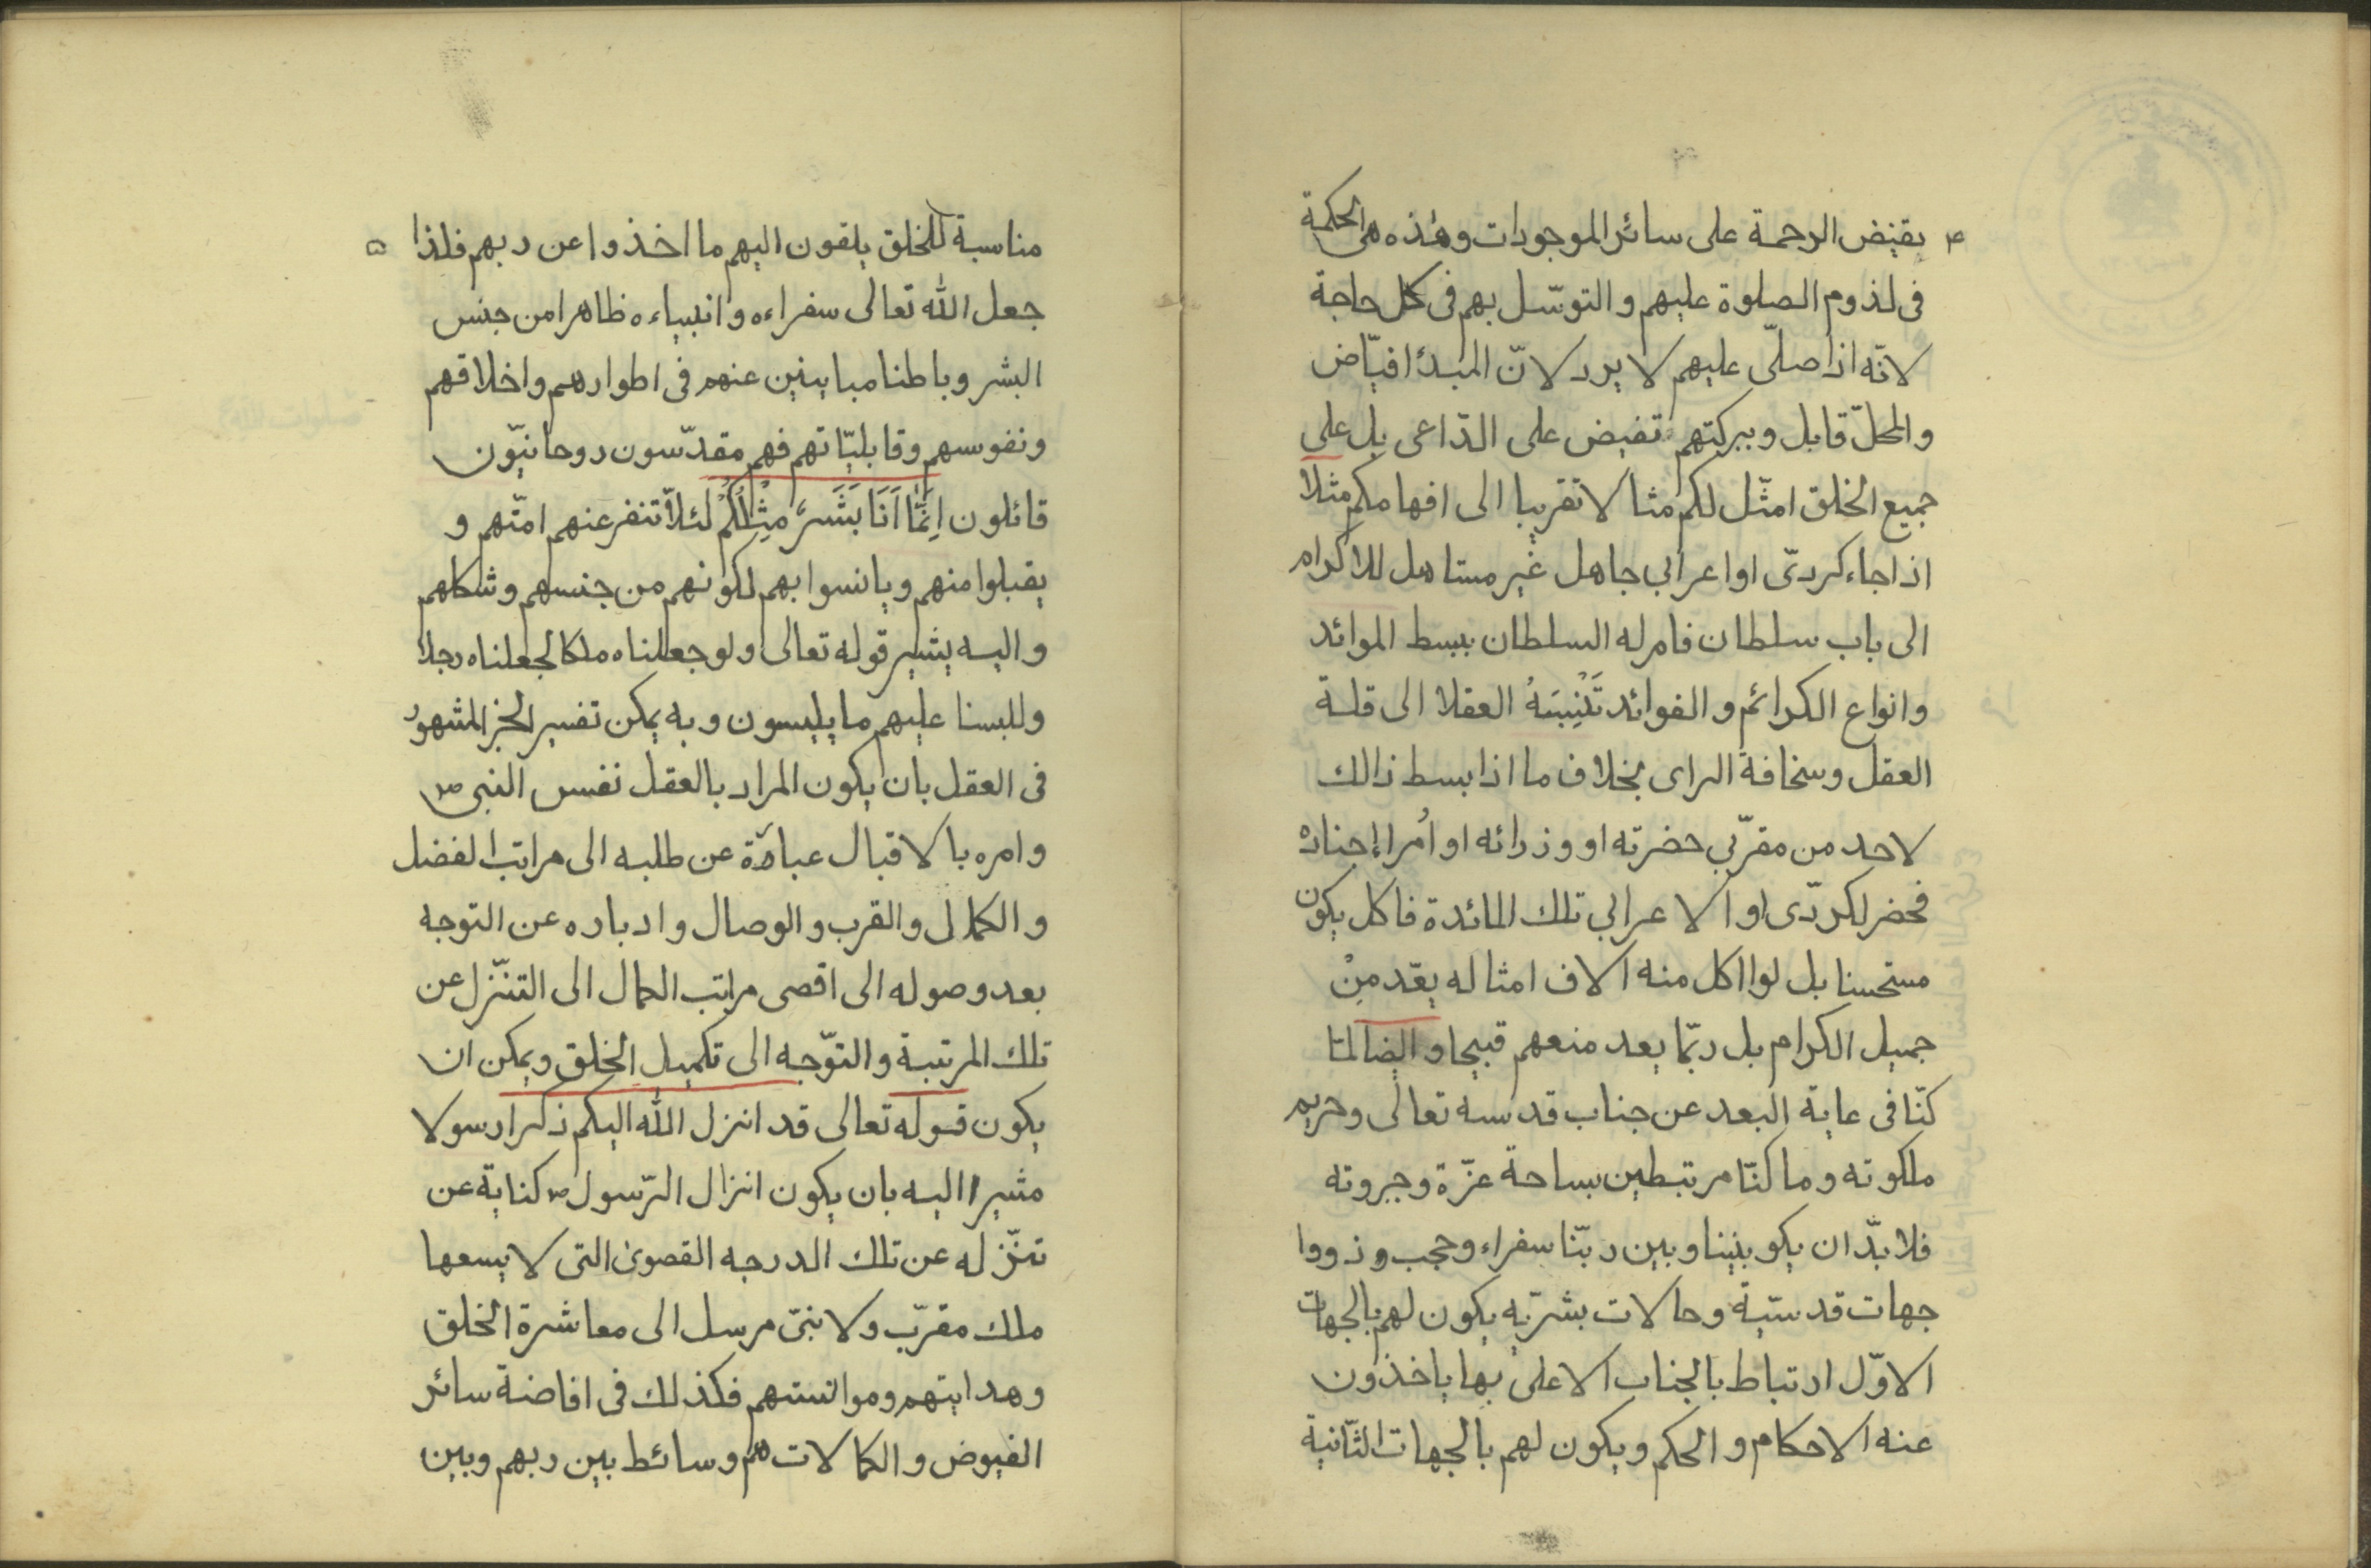 ۴
يفيض الرحمة على سائر الموجودات وهذه هى الحكمة
فى لذوم الصلوة عليهم و التوسّل بهم فى كل حاجة
لانّه اذا صلّى عليهم لا يرد لانّ المبدأ فيّاض
والمحلّ قابل وببركتهم تفيض على الدّاعى بل على
جميع الخلق امثّل لكم مثالا تقريبا الى افهامكم مثلا
اذا جاء كردىّ او اعرابي جاهل غير مستاهل للاكرام
الى باب سلطان فامر له السلطان ببسط الموائد
وانواع الكرائم و الفوائد تَنْسِبَهُ العقلا الى قلة
العقل وسخافة الراى بخلاف ما اذا بسط ذالك
لاحد من مقرّبي حضرته او وزرائه او اُمراء اجناده
فحضر لكردّى او الاعرابي تلك المائدة فاكل يكون
مستحسنا بل لو اكل منه الاف امثاله يعّد مِنْ
جميل الكرام بل ربّما يعد منعهم قبيحا و ايضا لمّا
كنّا فى غاية البعد عن جناب قدسه تعالى وحريم
ملكوته وما كنّا مرتبطين بساحة عزّة وجبروته
فلا بدّ ان يكو بيننا وبين ربّنا سفراء وحجب و ذووا
جهات قدسيّة وحالات بشريّه يكون لهم بالجهات
الاوّل ارتباط بالجناب الاعلى بها ياخذون
عنه الاحكام و الحكم ويكون لهم بالجهات الثّانية
۵
مناسبة للخلق يلقون اليهم ما اخذوا عن ربهم فلذا
جعل الله تعالى سفراءه و انبياءه ظاهرا من جنس
البشر وباطنا مباينين عنهم فى اطوارهم واخلاقهم
ونفوسهم وقابليّاتهم فهم مقدّسون روحانيّون
قائلون اِنَّمَا اَنَا بَشَرٌ مِثْلُكُمْ لئلاّ تنفر عنهم امّتهم و
يقبلوا منهم ويانسوا بهم لكونهم من جنسهم وشكلهم
واليه يشير قوله تعالى ولو جعلناه ملكا لجعلناه رجلا
وللبسنا عليهم ما يلبسون وبه يمكن تفسير الخبر المشهور
فى العقل بان يكون المراد بالعقل نفس النبى ص
وامره بالاقبال عبارة عن طلبه الى مراتب الفضل
و الكمال والقرب و الوصال و ادباره عن التوجه
بعد وصوله الى اقصى مراتب الكمال الى التنّزل عن
تلك المرتبة والتوّجه الى تكميل الخلق ويمكن ان
يكون قوله تعالى قد انزل الله اليكم ذكرا رسولا
مشيرا اليه بان يكون انزال الرّسول ص كناية عن
تنزّله عن تلك الدرجه القصوى التى لا يسعها
ملك مقرّب ولا نبىّ مرسل الى معاشرة الخلق
وهدايتهم وموانستهم فكذلك فى افاضة سائر
الفيوض و الكمالات هم وسائط بين ربهم وبين